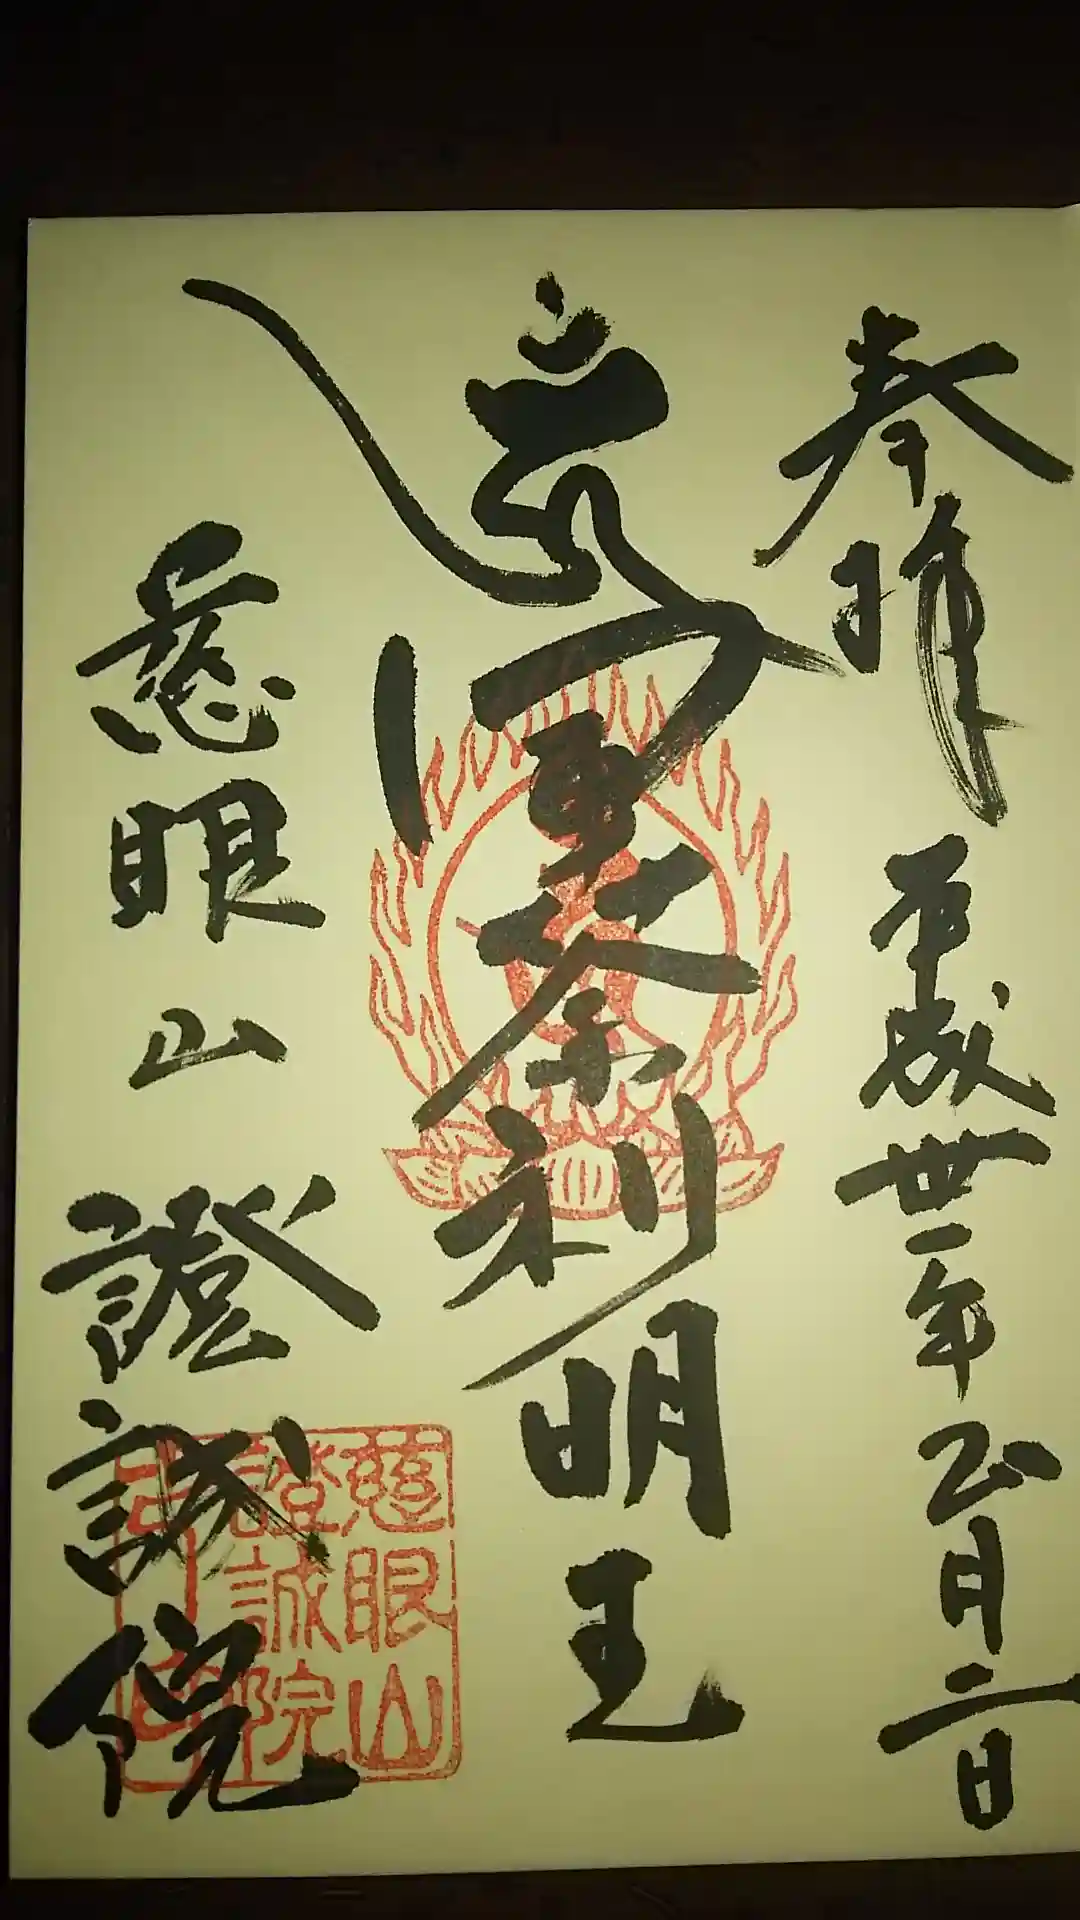 奉拝 平成卅一年正月二日
軍荼利明王
慈眼山 證誠院
慈眼山
證誠院
印